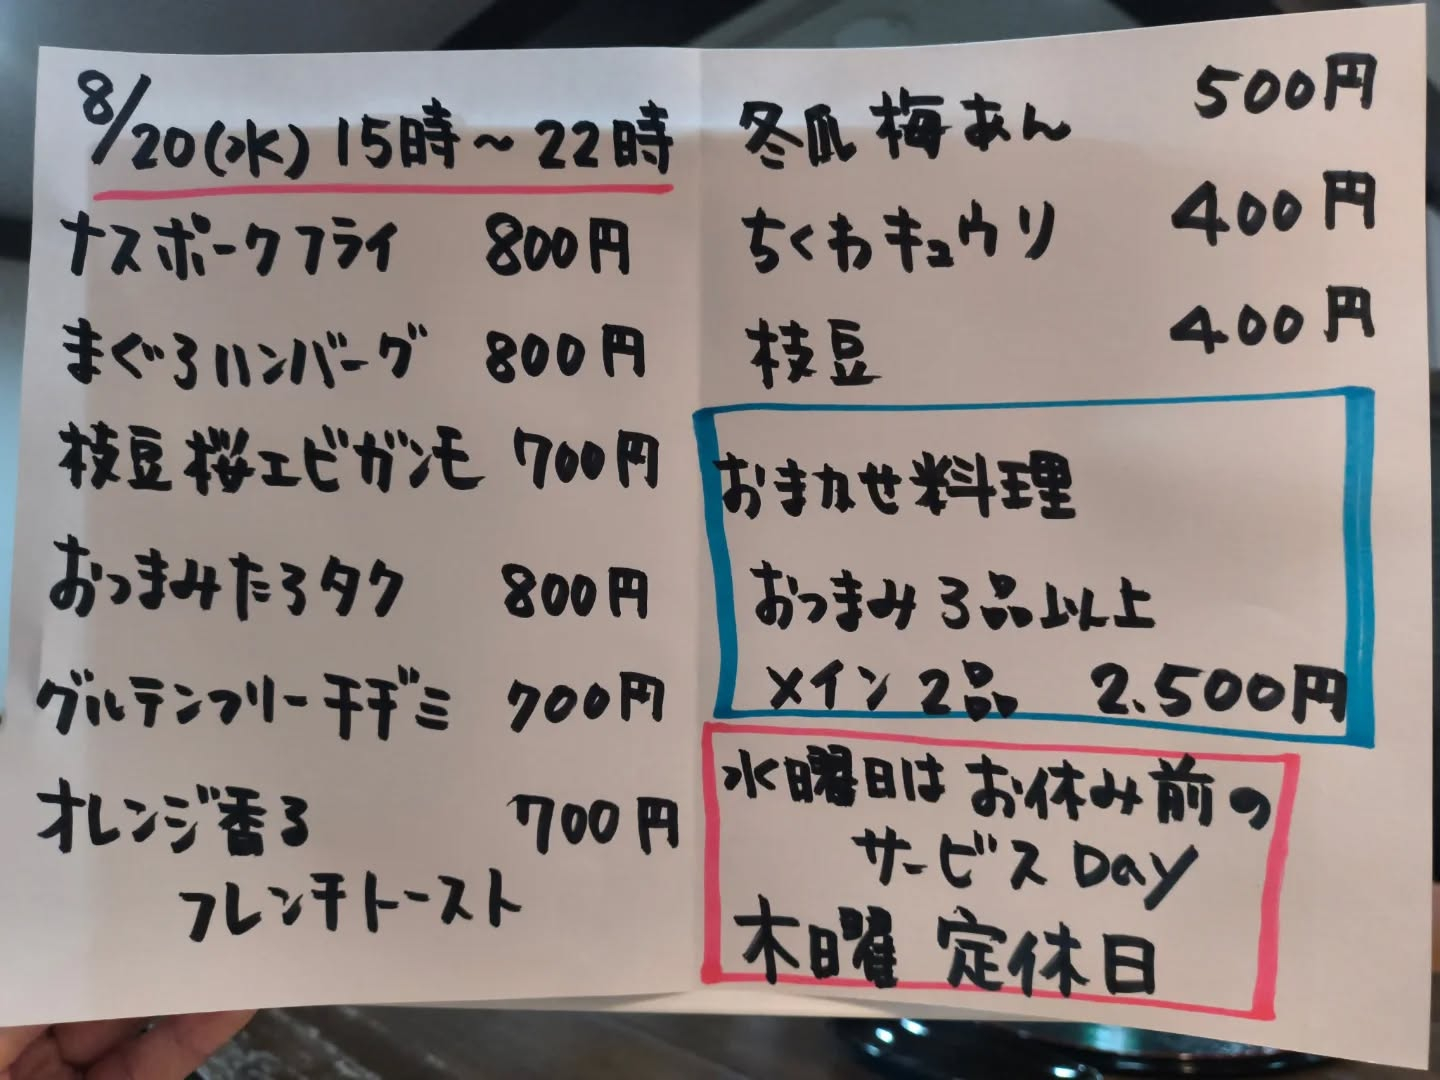 8/20(水) 15時～22時
ナスポークフライ 800円
まぐろハンバーグ 800円
枝豆桜エビガンモ 700円
おつまみたろタク 800円
グルテンフリーチヂミ 700円
オレンジ香る 700円
フレンチトースト
冬瓜 梅あん 500円
ちくわキュウリ 400円
枝豆 400円
おまかせ料理
おつまみ3品以上
メイン2品 2.500円
水曜日は お休み前の
サービスDay
木曜 定休日